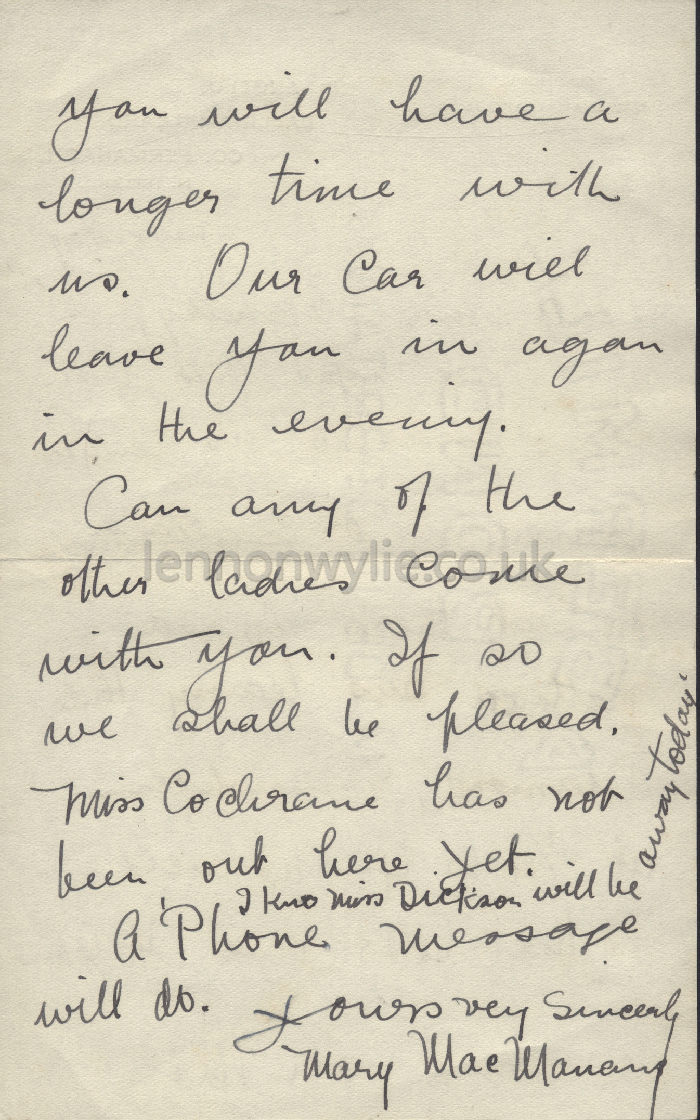 you will have a
longer time with
us. Our Car will
leave you in again
in the evening.
Can any of the
lennonwylie.co.uk
other ladies come
with you. If so
we shall be pleased.
Miss Cochrane has not
been out here yet.
I kno Miss Dickson will be
away today.
A 'Phone message
will do. Yours very Sincerely
Mary Mac Manany